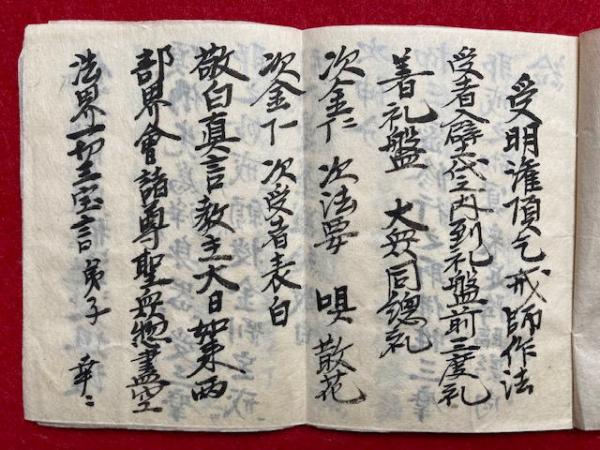 受明灌頂乞戒師作法
受者入壁代之内到礼盤前三度礼
着礼盤 大衆同總礼
次金丁 次法要 唄 散花
次金丁 次受者表白
敬白真言教主大日如来両
部界會諸尊聖衆惣盡空
法界一切三宝言弟子 幸〻